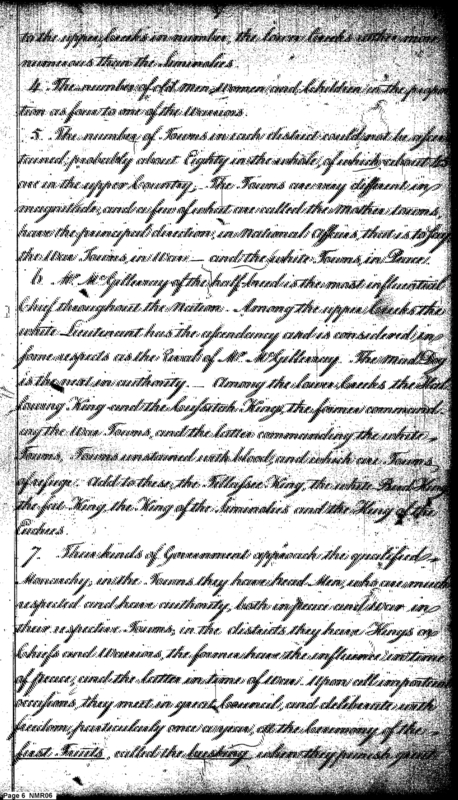 to the upper Creeks in number, the lower Creeks rather more
numerous than the Siminolies
4 The number of old men, women and Children in the propor
tion as four to one of the Warriors.
5 The number of Towns in each district could not be ascer
tained, probably about Eighty in the whole, of which about 45
are in the upper Country. The Towns are very different in
magnitude, and a few of what are called the Mother towns,
have the principal direction, in National Affairs, that is to say
the War Towns, in War — and the white Towns, in Peace.
6 Mr. McGillivray of the half breed is the most influential
Chief throughout the Nation. Among the upper Creeks the
white Lieutenant has the ascendancy and is considered in
some respects as the Rival of Mr. McGillivray. The Mad Dog
is the next in authority. — Among the lower Creeks the Hal
lowing King and the Cussitah King, the former command
ing the War Towns, and the latter commanding the white
Towns, Towns unstained with blood, and which are Towns
of refuge. Add to these, the Tallissee King, the white Bird King
the fat King, the King of the Siminolies and the King of the
Euchees.
7. Their kinds of Government approach the qualified
Monarchy; in the Towns they have head Men, who are much
respected and have authority, both in peace and war in
their respective Towns; in the districts they have Kings or
Chiefs and Warriors, the former have the influence in time
of peace, and the latter in time of War. Upon all important
occasions, they meet in great Council, and deliberate with
freedom, particularly once a year, at the Ceremony of the
first Fruits, called the busking when they punish great
Page 6 NMR06